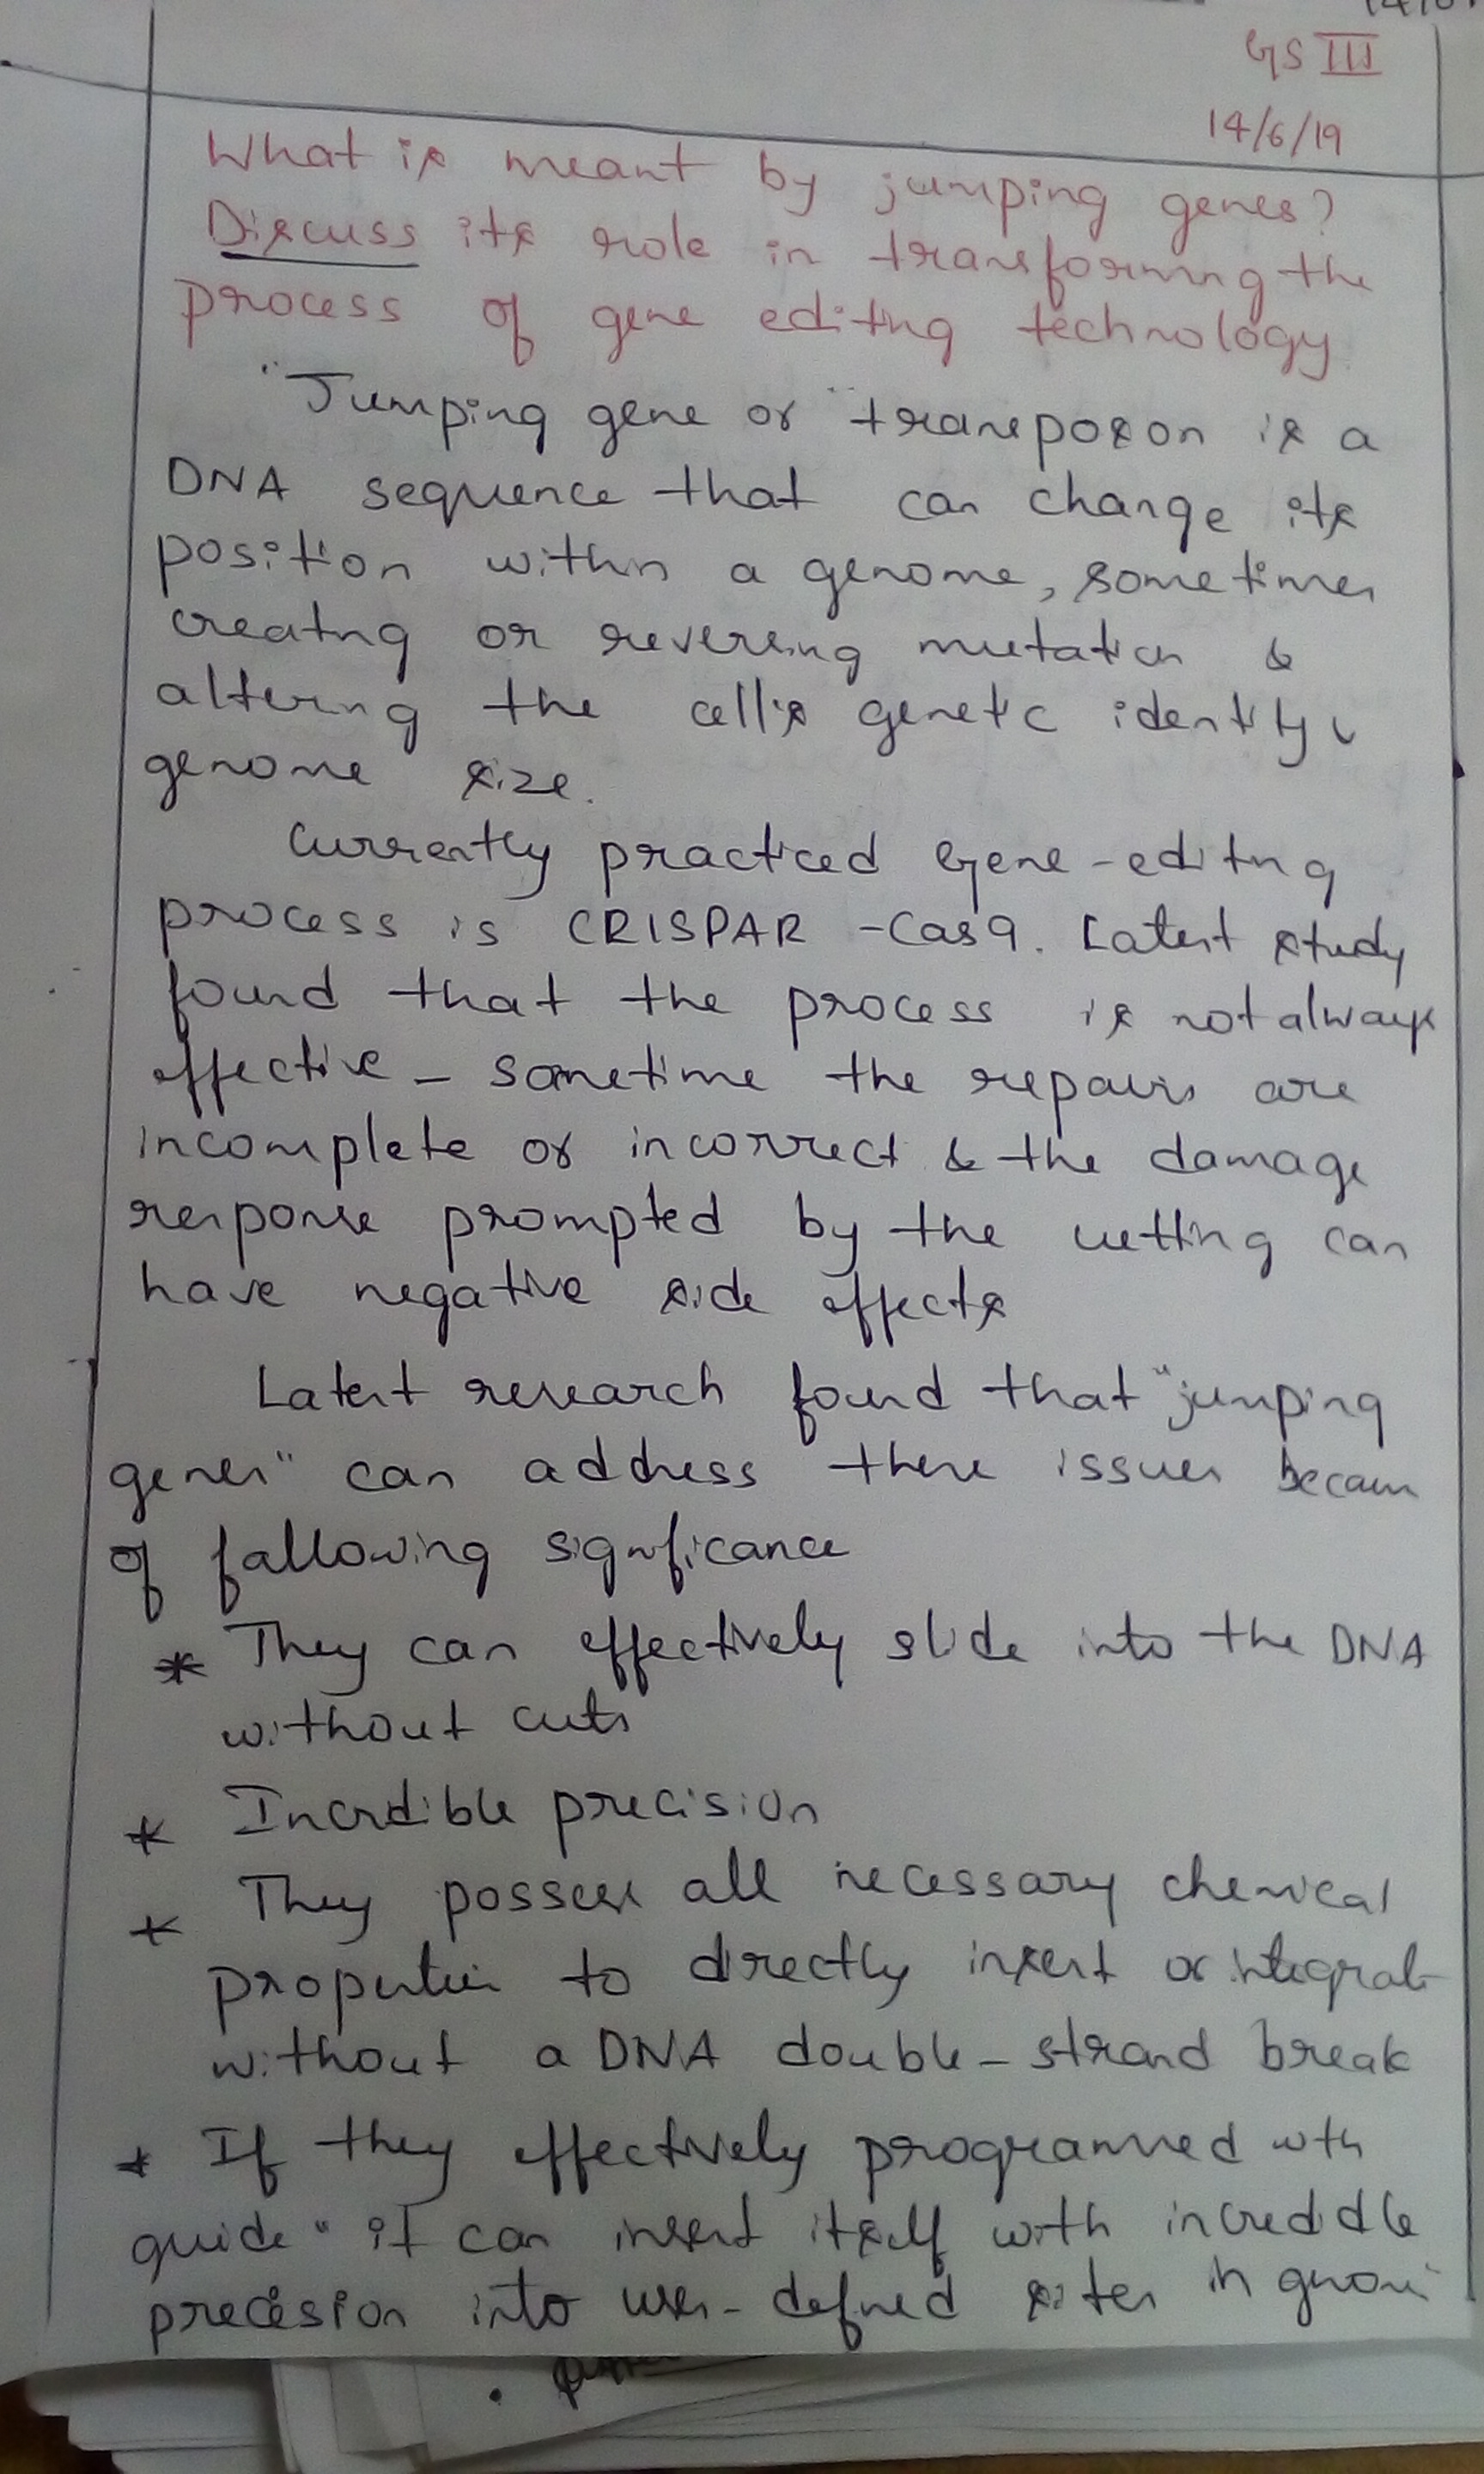 GS III
14/6/19
What is meant by jumping genes?
Discuss its role in transforming the
process of gene editing technology
"Jumping gene or "transposon is a
DNA sequence that can change its
position within a genome, sometimes
creating or reversing mutation &
altering the cell's genetic identity &
genome size.
Currently practiced Gene-editing
process is CRISPAR -Cas9. Latest study
found that the process is not always
effective - sometime the repairs are
incomplete or incorrect & the damage
response prompted by the cutting can
have negative side effects
Latest research found that "jumping
genes" can address these issues because
of fallowing significance
* They can effectively slide into the DNA
without cuts
* Incredible precision
* They possess all necessary chemical
properties to directly insert or integrate
without a DNA double-strand break
* If they effectively programmed with
guide" it can insert itself with incredible
precision into user-defined sites in genome